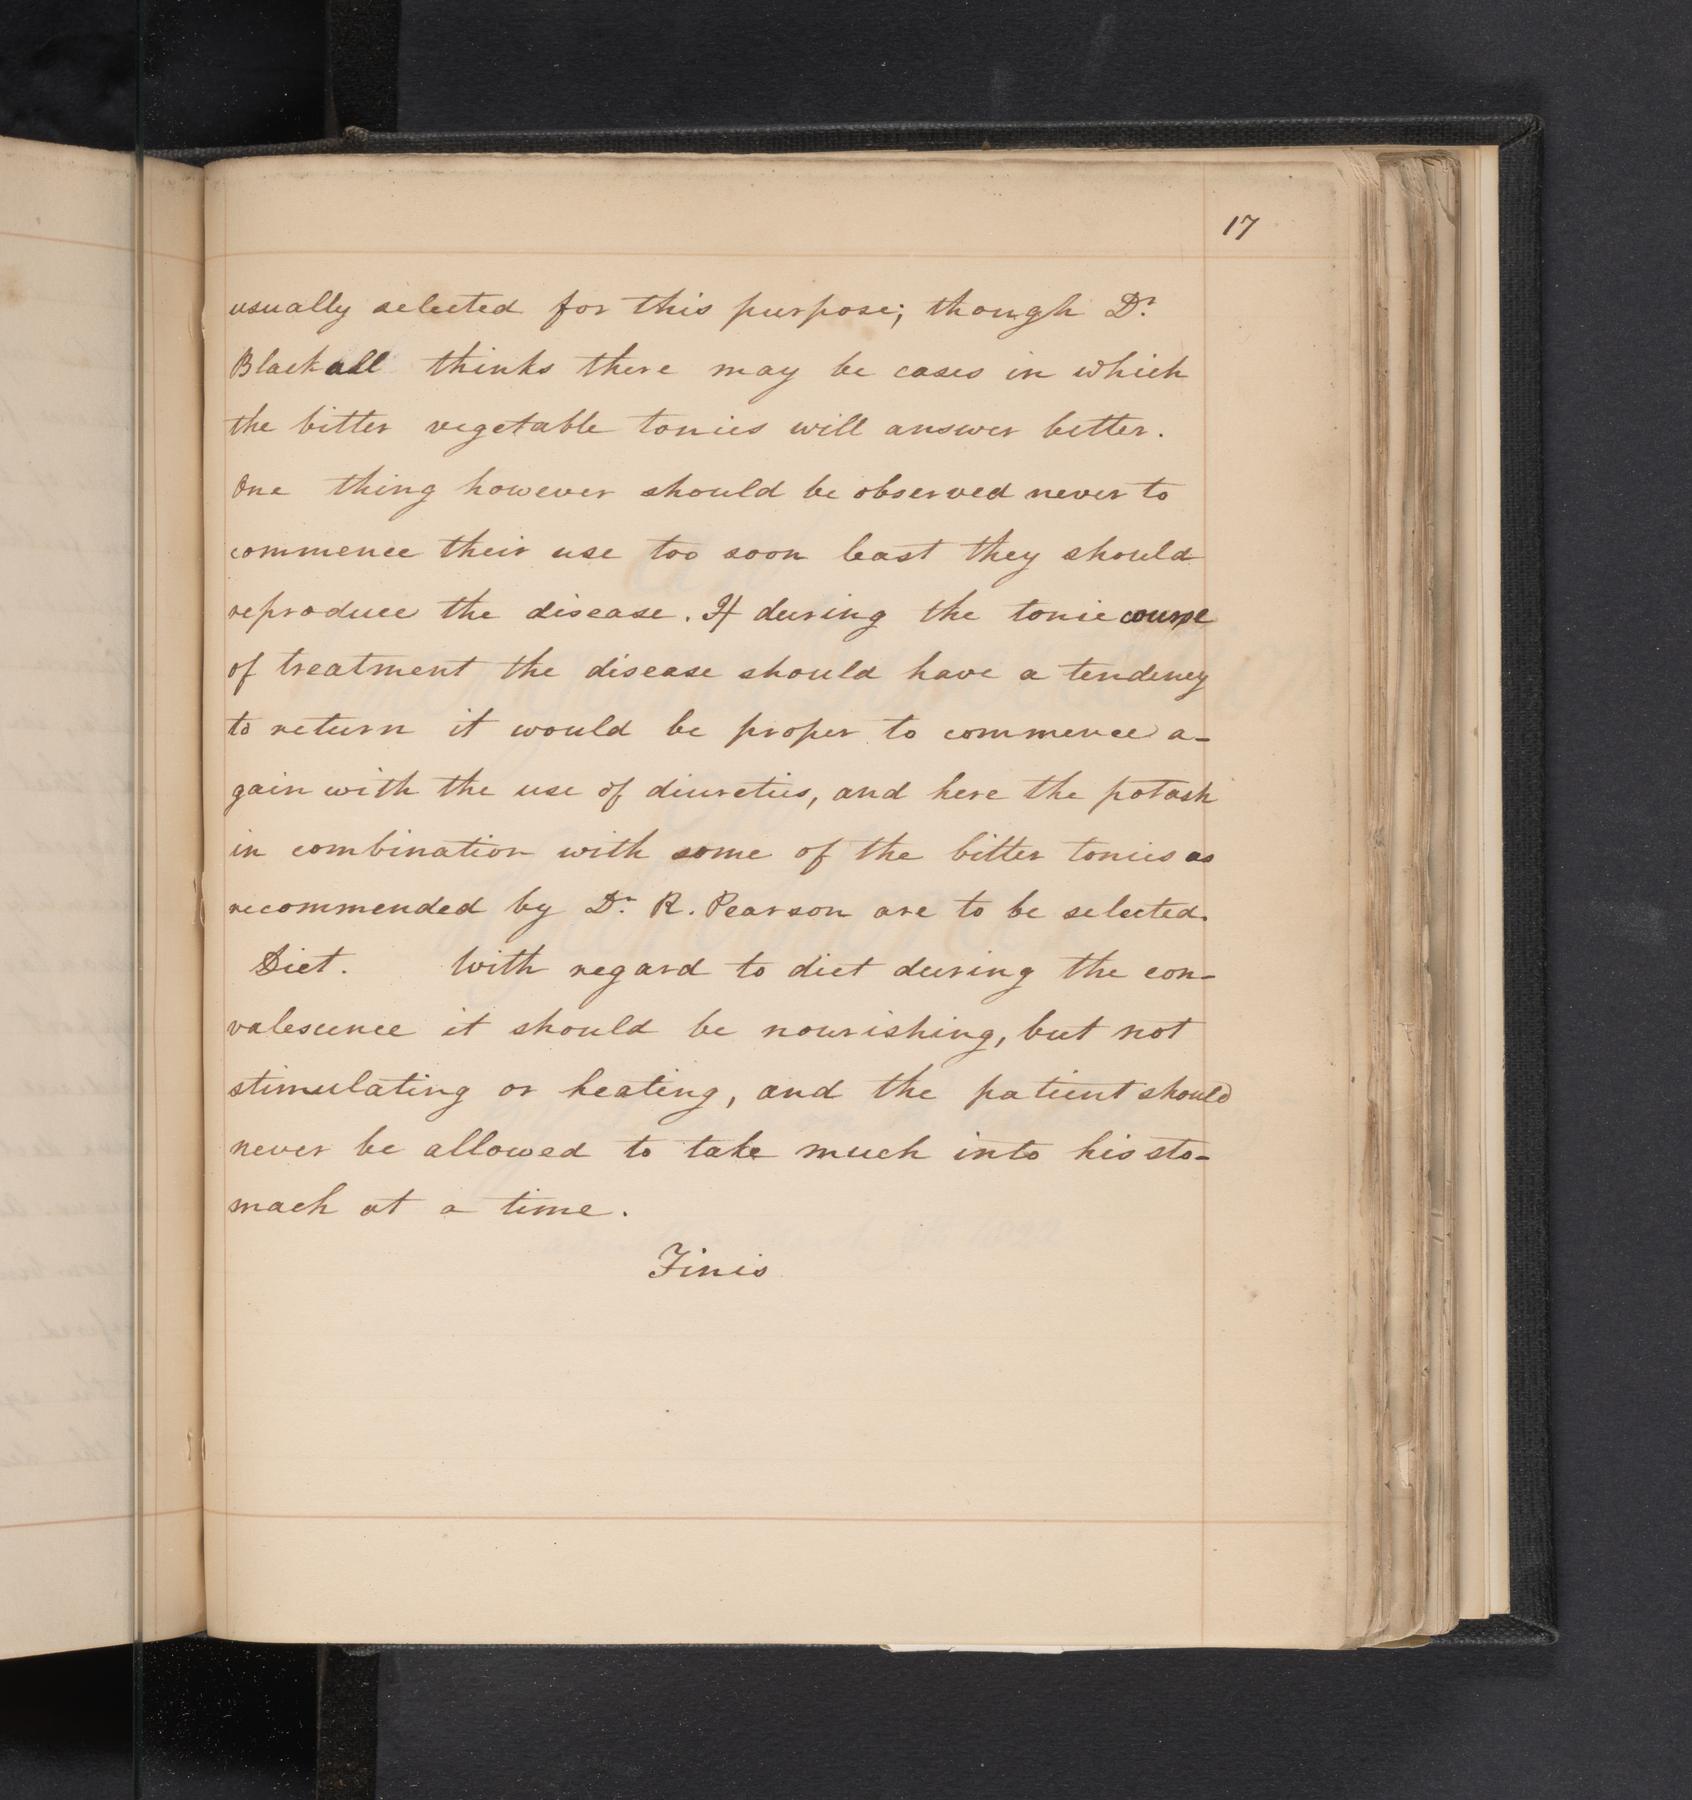 17
usually selected for this purpose; though Dr.
Blackall thinks there may be cases in which
the bitter vegetable tonics will answer better.
One thing however should be observed never to
commence their use too soon least they should
reproduce the disease. If during the tonic course
of treatment the disease should have a tendency
to return it would be proper to commence a-
gain with the use of diuretics, and here the potash
in combination with some of the bitter tonics as
recommended by Dr. R. Pearson are to be selected.
Diet. With regard to diet during the con-
valescence it should be nourishing, but not
stimulating or heating, and the patient should
never be allowed to take much into his sto-
mach at a time.
Finis